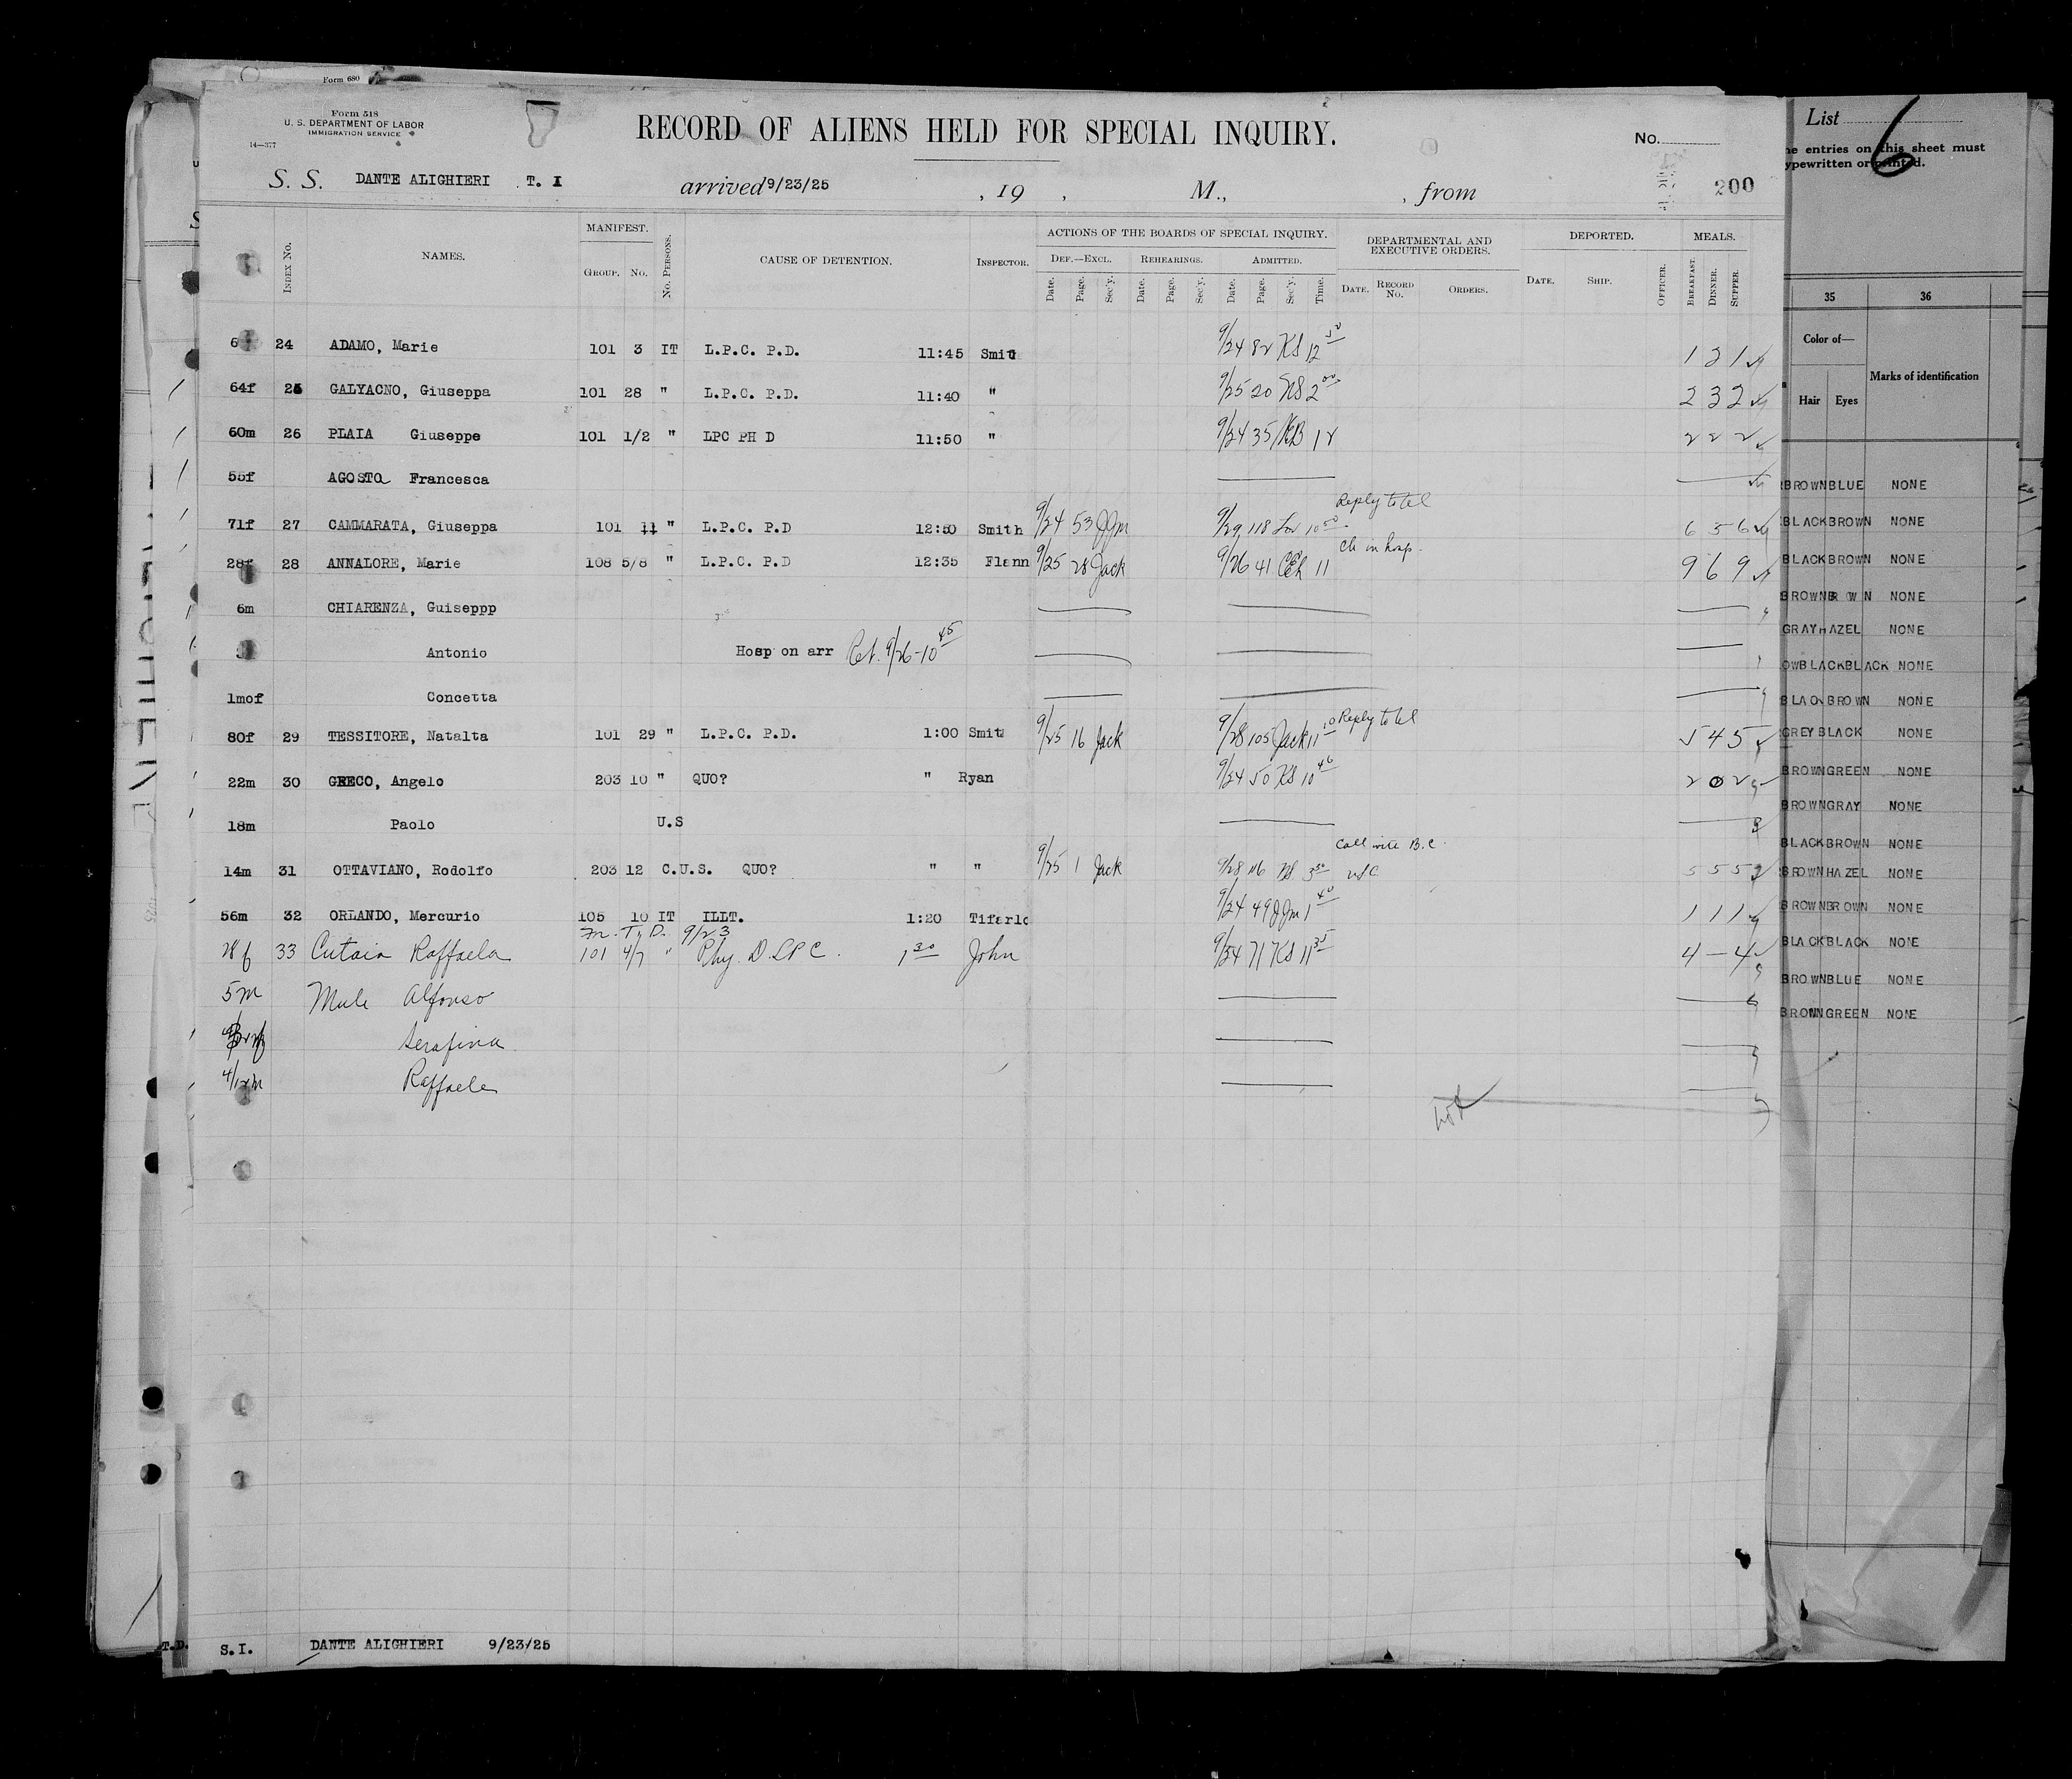 Form 680
Form 518
U. S. DEPARTMENT OF LABOR
IMMIGRATION SERVICE
14—377
RECORD OF ALIENS HELD FOR SPECIAL INQUIRY.
No.
S. S. DANTE ALIGHIERI T. I arrived 9/23/25 , 19 , M., , from 200
INDEX NO. NAMES. MANIFEST. GROUP. NO. NO. PERSONS. CAUSE OF DETENTION. INSPECTOR. ACTIONS OF THE BOARDS OF SPECIAL INQUIRY. DEPARTMENTAL AND EXECUTIVE ORDERS. DEPORTED. MEALS.
DEF.—EXCL. REHEARINGS. ADMITTED.
Date. Page. Sec'y. Date. Page. Sec'y. Date. Page. Sec'y. Time. DATE. RECORD NO. ORDERS. DATE. SHIP. OFFICER. BREAKFAST. DINNER. SUPPER.
24 ADAMO, Marie 101 3 IT L.P.C. P.D. 11:45 Smit 9/24 82 KS 12 1 2 1
64f 25 GALYACNO, Giuseppa 101 28 " L.P.C. P.D. 11:40 " 9/25 20 NS 2 00 2 3 2
60m 26 PLAIA Giuseppe 101 1/2 " LPC PH D 11:50 " 9/24 35 12 2 2 2
55f AGOSTA Francesca
Reply to tel
71f 27 CAMMARATA, Giuseppa 101 11 " L.P.C. P.D 12:50 Smith 9/24 53 JJm 9/29 118 10 50 6 5 6
Ch in hosp.
28f 28 ANNALORE, Marie 108 5/8 " L.P.C. P.D 12:35 Flann 9/25 28 Jack 9/26 41 CEh 11 9 6 9
6m CHIARENZA, Guiseppp
Antonio Hosp on arr Ret. 9/26-10 45
1mof Concetta
80f 29 TESSITORE, Natalta 101 29 " L.P.C. P.D. 1:00 Smit 9/25 16 Jack 9/28 105 Jack 11 10 Reply to tel 5 4 5
22m 30 GRECO, Angelo 203 10 " QUO? " Ryan 9/24 50 KS 10 46 2 0 2
18m Paolo U.S
Call with B.C.
14m 31 OTTAVIANO, Rodolfo 203 12 C.U.S. QUO? " " 9/25 1 Jack 9/28 116 NS 3 30 USC 5 5 5
56m 32 ORLANDO, Mercurio 105 10 IT ILLT. 1:20 Tifarlo 9/24 49 JJm 1 40 1 1 1
Fr. T. D. 9/23
28 f 33 Cutaia Raffaela 101 4/7 " Phy. D. LPC. 1 30 John 9/24 71 KS 11 35 4 — 4
5m Mule Alfonso
Serafina
4/12m Raffaele
S.I. DANTE ALIGHIERI 9/23/25
T.D.
List 6
entries on this sheet must
typewritten or printed.
35 36
Color of—
Marks of identification
Hair Eyes
BROWN BLUE NONE
BLACK BROWN NONE
BLACK BROWN NONE
BROWN NONE
GRAY HAZEL NONE
BLACK BLACK NONE
BROWN NONE
GREY BLACK NONE
BROWN GREEN NONE
BROWN GRAY NONE
BLACK BROWN NONE
BROWN HAZEL NONE
BROWN BROWN NONE
BLACK BLACK NONE
BROWN BLUE NONE
BROWN GREEN NONE